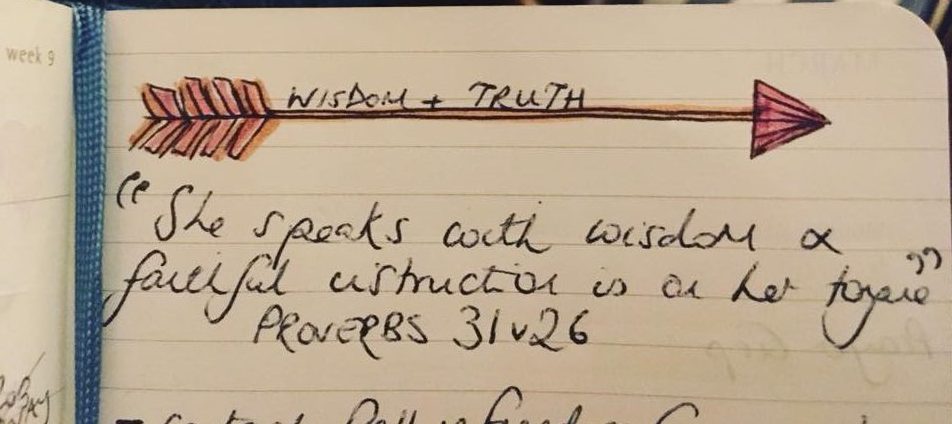 week 9
WISDOM + TRUTH
"She speaks with wisdom &
faithful instruction is on her tongue"
PROVERBS 31v26